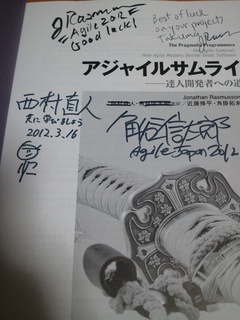 J Rasmusson
Agile 2012
Good luck!
Best of luck
on your projects
The Pragmatic Programmers
アジャイルサムライ
達人開発者への道
Jonathan Rasmusson
近藤修平・角掛拓未
西村直人
共に学びましょう
2012.3.16
角谷信太郎
Agile Japan 2012